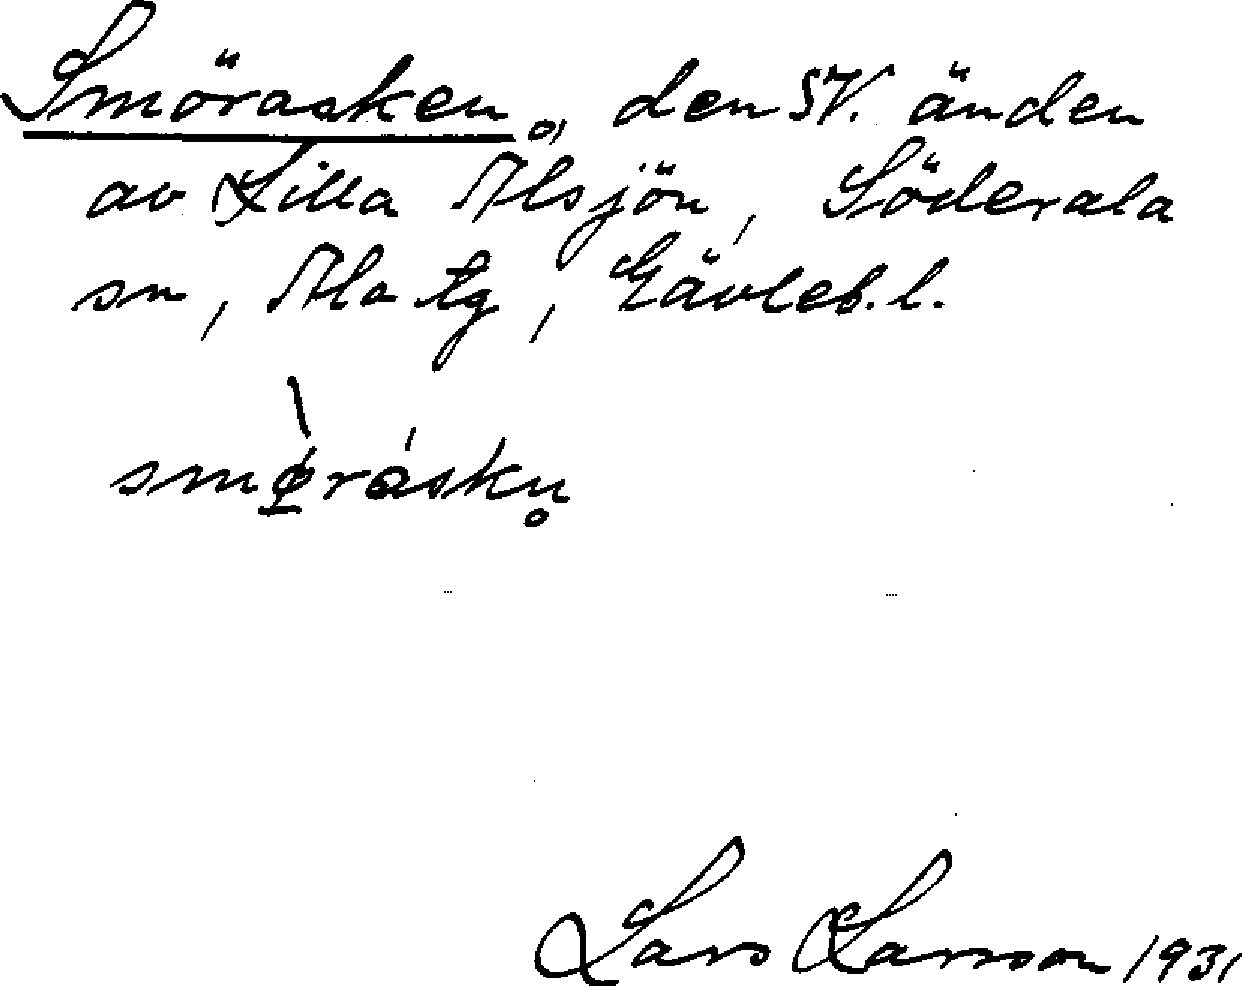 Smörasken, den SV. änden
av Lilla Alsjön, Söderala
sn, Ala tg, Gävleb.l.
smø̀ráskn̥
Lars Larsson 1931